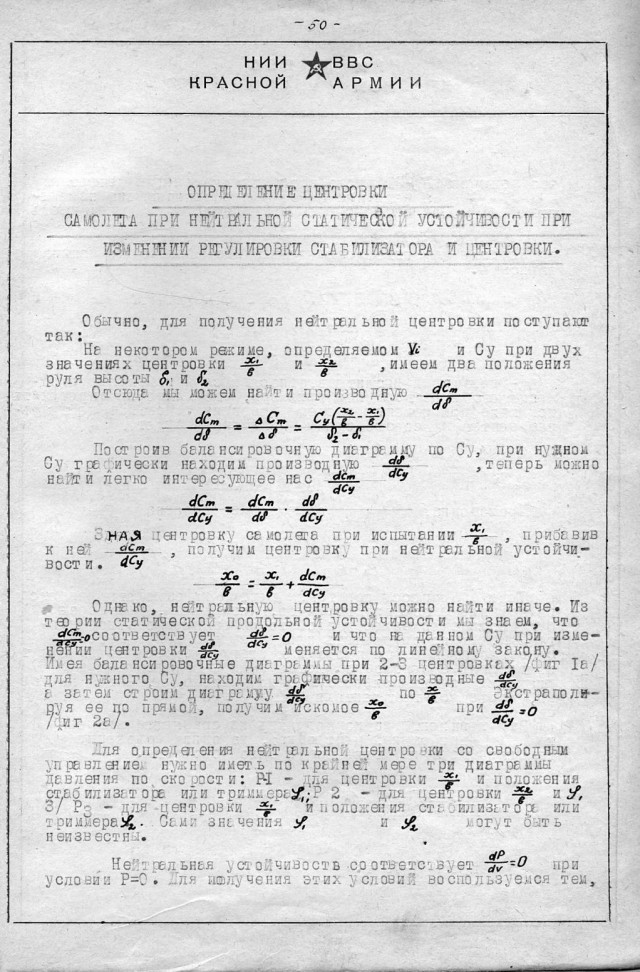 - 50 -
НИИ ВВС
КРАСНОЙ АРМИИ
ОПРЕДЕЛЕНИЕ ЦЕНТРОВКИ
САМОЛЕТА ПРИ НЕЙТРАЛЬНОЙ СТАТИЧЕСКОЙ УСТОЙЧИВОСТИ ПРИ
ИЗМЕНЕНИИ РЕГУЛИРОВКИ СТАБИЛИЗАТОРА И ЦЕНТРОВКИ.
Обычно, для получения нейтральной центровки поступают
так:
На некотором режиме, определяемом Vi и Cy при двух
значениях центровки x₁/в и x₂/в ,имеем два положения
руля высоты δ₁ и δ₂
Отсюда мы можем найти производную dCm/dδ
dCm/dδ = ΔCm/Δδ = Cy(x₂/в - x₁/в)/δ₂-δ₁
Построив балансировочную диаграмму по Cy, при нужном
Cy графически находим производную dδ/dCy ,теперь можно
найти легко интересующее нас dCm/dCy
dCm/dCy = dCm/dδ · dδ/dCy
Зная центровку самолета при испытании x₁/в , прибавив
к ней dCm/dCy , получим центровку при нейтральной устойчи-
вости.
x₀/в = x₁/в + dCm/dCy
Однако, нейтральную центровку можно найти иначе. Из
теории статической продольной устойчивости мы знаем, что
dCm/dCy=0 соответствует dδ/dCy=0 и что на данном Cy при изме-
нении центровки dδ/dCy меняется по линейному закону.
Имея балансировочные диаграммы при 2-3 центровках /фиг 1а/
для нужного Cy, находим графически производные dδ/dCy
а затем строим диаграмму dδ/dCy по x/в Экстраполи-
руя ее по прямой, получим искомое x₀/в при dδ/dCy=0
/фиг 2а/.
Для определения нейтральной центровки со свободным
управлением нужно иметь по крайней мере три диаграммы
давления по скорости: P1 - для центровки x₁/в и положения
стабилизатора или триммера φ₁; P 2 - для центровки x₂/в и φ₁
3/ P₃ - для центровки x₁/в и положения стабилизатора или
триммера φ₂. Сами значения φ₁ и φ₂ могут быть
неизвестны.
Нейтральная устойчивость соответствует dP/dv=0 при
условии P=0. Для получения этих условий воспользуемся тем,